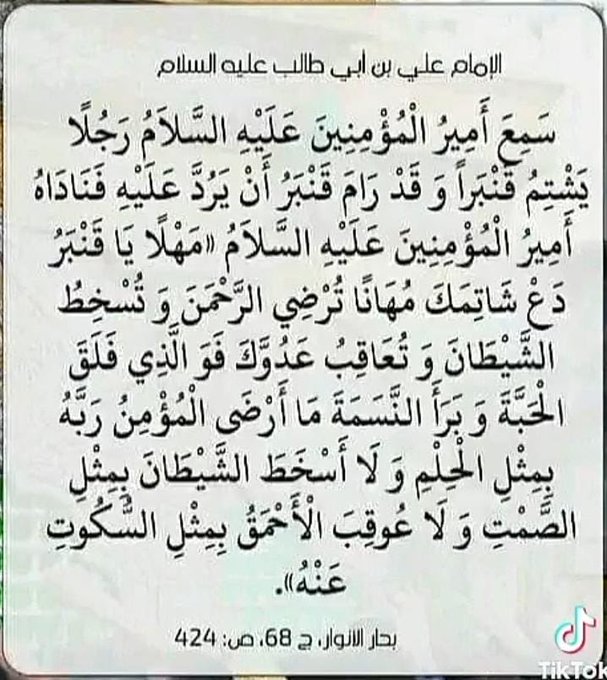 الإمام علي بن أبي طالب عليه السلام
سَمِعَ أَمِيرُ الْمُؤْمِنِينَ عَلَيْهِ السَّلَامُ رَجُلًا
يَشْتِمُ قَنْبَراً وَ قَدْ رَامَ قَنْبَرُ أَنْ يَرُدَّ عَلَيْهِ فَنَادَاهُ
أَمِيرُ الْمُؤْمِنِينَ عَلَيْهِ السَّلَامُ «مَهْلًا يَا قَنْبَرُ
دَعْ شَاتِمَكَ مُهَانًا تُرْضِي الرَّحْمَنَ وَ تُسْخِطُ
الشَّيْطَانَ وَ تُعَاقِبُ عَدُوَّكَ فَوَ الَّذِي فَلَقَ
الْحَبَّةَ وَ بَرَأَ النَّسَمَةَ مَا أَرْضَى الْمُؤْمِنُ رَبَّهُ
بِمِثْلِ الْحِلْمِ وَ لَا أَسْخَطَ الشَّيْطَانَ بِمِثْلِ
الصَّمْتِ وَ لَا عُوقِبَ الْأَحْمَقُ بِمِثْلِ السُّكُوتِ
عَنْهُ».
بحار الانوار، ج 68، ص: 424
TikTok